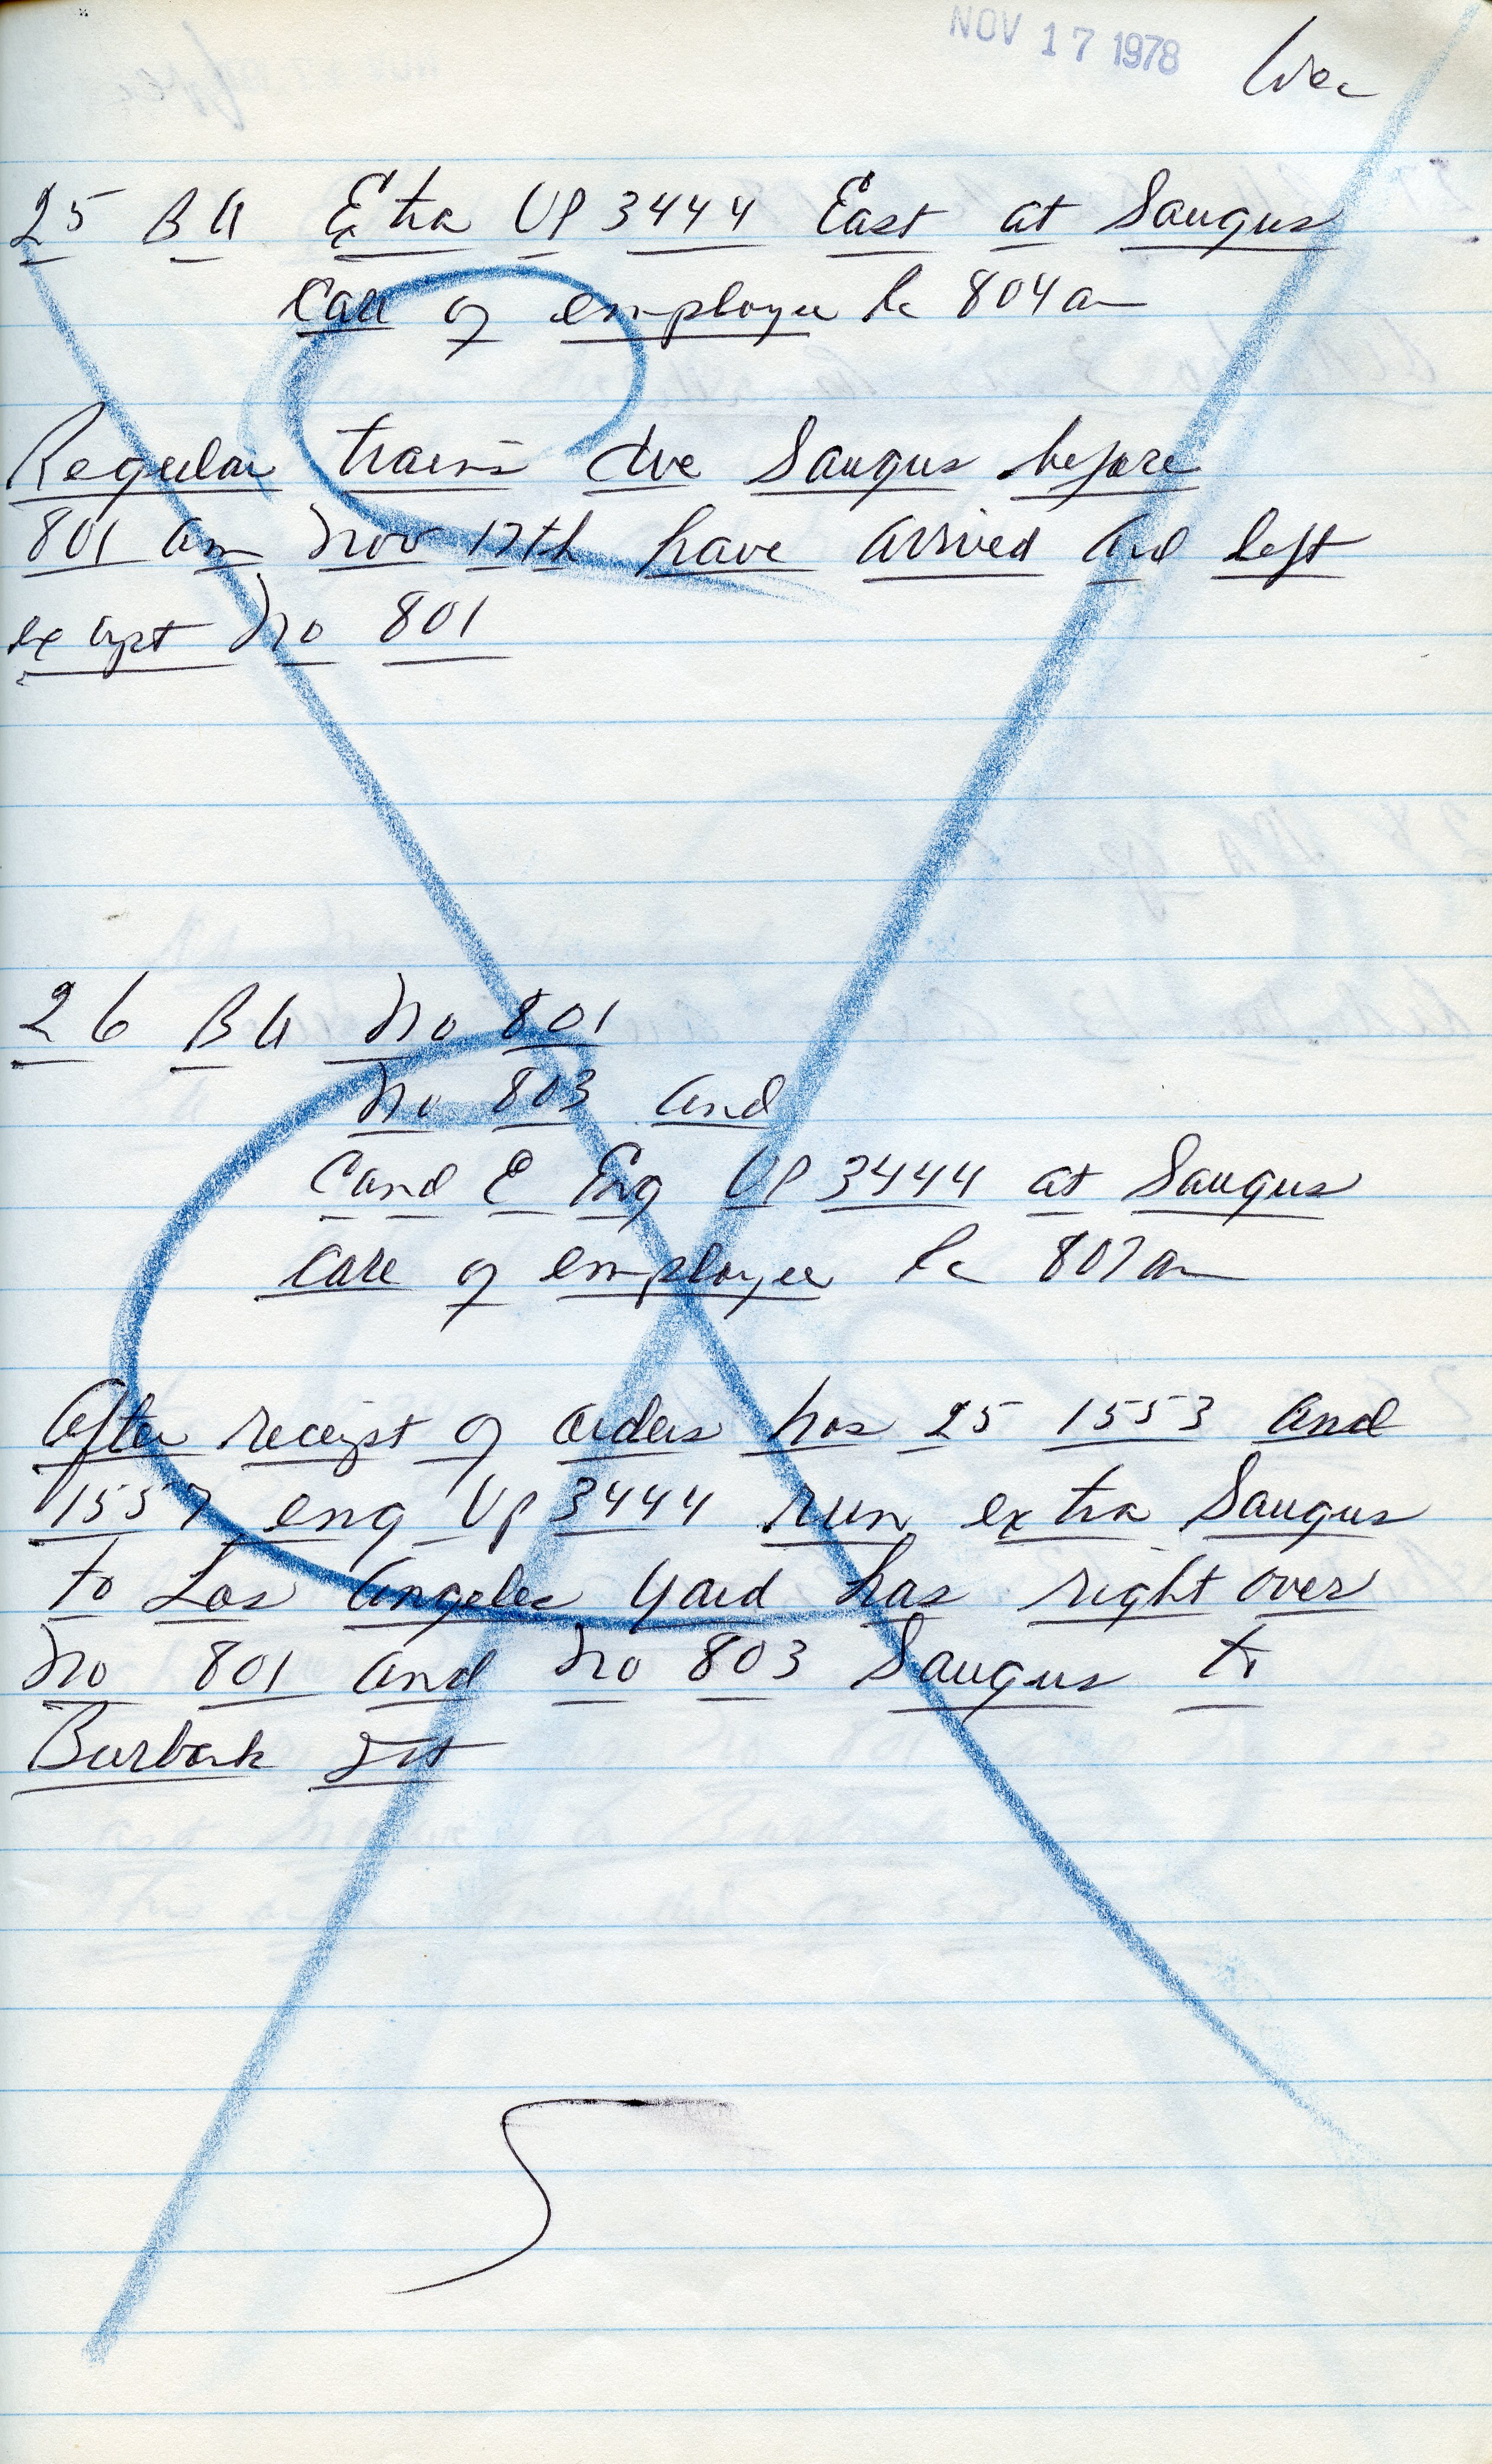 NOV 17 1978
25 BU Extra UP 3444 East at Saugus
Care of employee 804 am
Regular trains due Saugus before
801 am Nov 17th have arrived and left
except No 801
26 BU No 801
No 803 and
C and E Eng UP 3444 at Saugus
Care of employee 807 am
After receipt of orders nos 25 1553 and
1557 eng UP 3444 run extra Saugus
to Los Angeles Yard has right over
No 801 and No 803 Saugus to
Burbank Jct